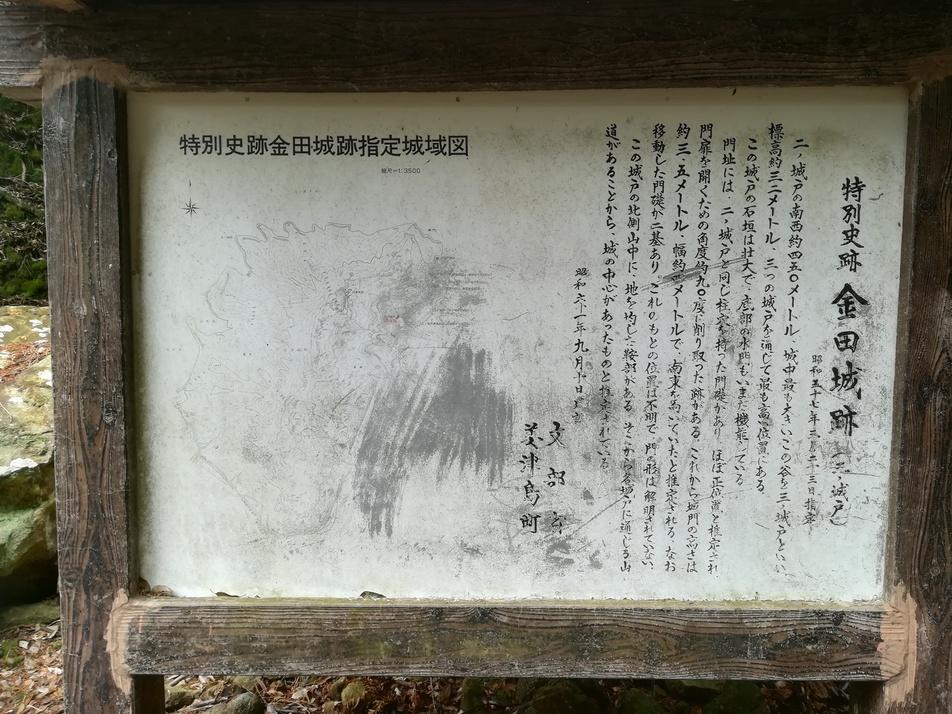 特別史跡金田城跡指定城域図
縮尺＝1:3500
特別史跡 金田城跡 (三ノ城戸)
昭和五十七年三月二十三日指定
二ノ城戸の南西約四五〇メートル、城中最も大きいこの谷を三ノ城戸といい、
標高約三二メートル、三つの城戸を通じて最も高い位置にある。
この城戸の石垣は壮大で、底部の水門もいまだ機能している。
門址には、二ノ城戸と同じ柱穴を持った門礎があり、ほぼ正位置と推定され、
門扉を開くための角度約九〇度に削り取った跡がある。これから城門の高さは
約三・五メートル、幅約 メートルで、南東を向いていたと推定される。なお
移動した門礎が二基あり、これのもとの位置は不明で、門の形は解明されていない。
この城戸の北側山中に、地を均した鞍部がある。そこから各城戸に通じる山
道があることから、城の中心があったものと推定されている。
昭和六十一年九月十日
文部
美津島町